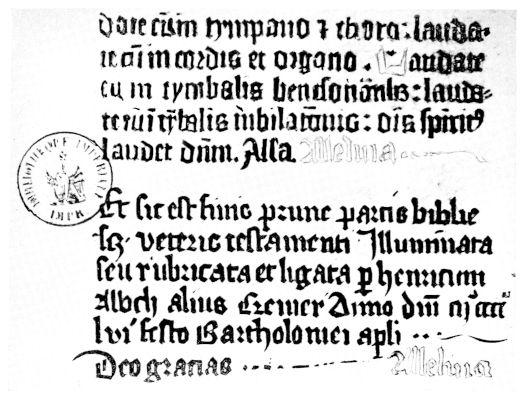 date eum tympano ⁊ choro: lauda-
te eū in cordis et organo. Laudate
eum in cymbalis benesonātibꝫ: lauda-
te eū ī cȳbalis iubilatōnis: oīs spiritꝰ
laudet dn̄m. Alla. Alleluia
BIBLIOTHEQUE IMPERIALE
IMPR.
Et sic est finis prime partis biblie
scꝫ. veteris testamenti Illuminata
seu rubricata et ligata ꝑ henricum
Albch alius Cremer Anno dn̄i mͦccccͦ
lvi festo Bartholomei apl̄i ..
Deo gracias ..... Alleluia